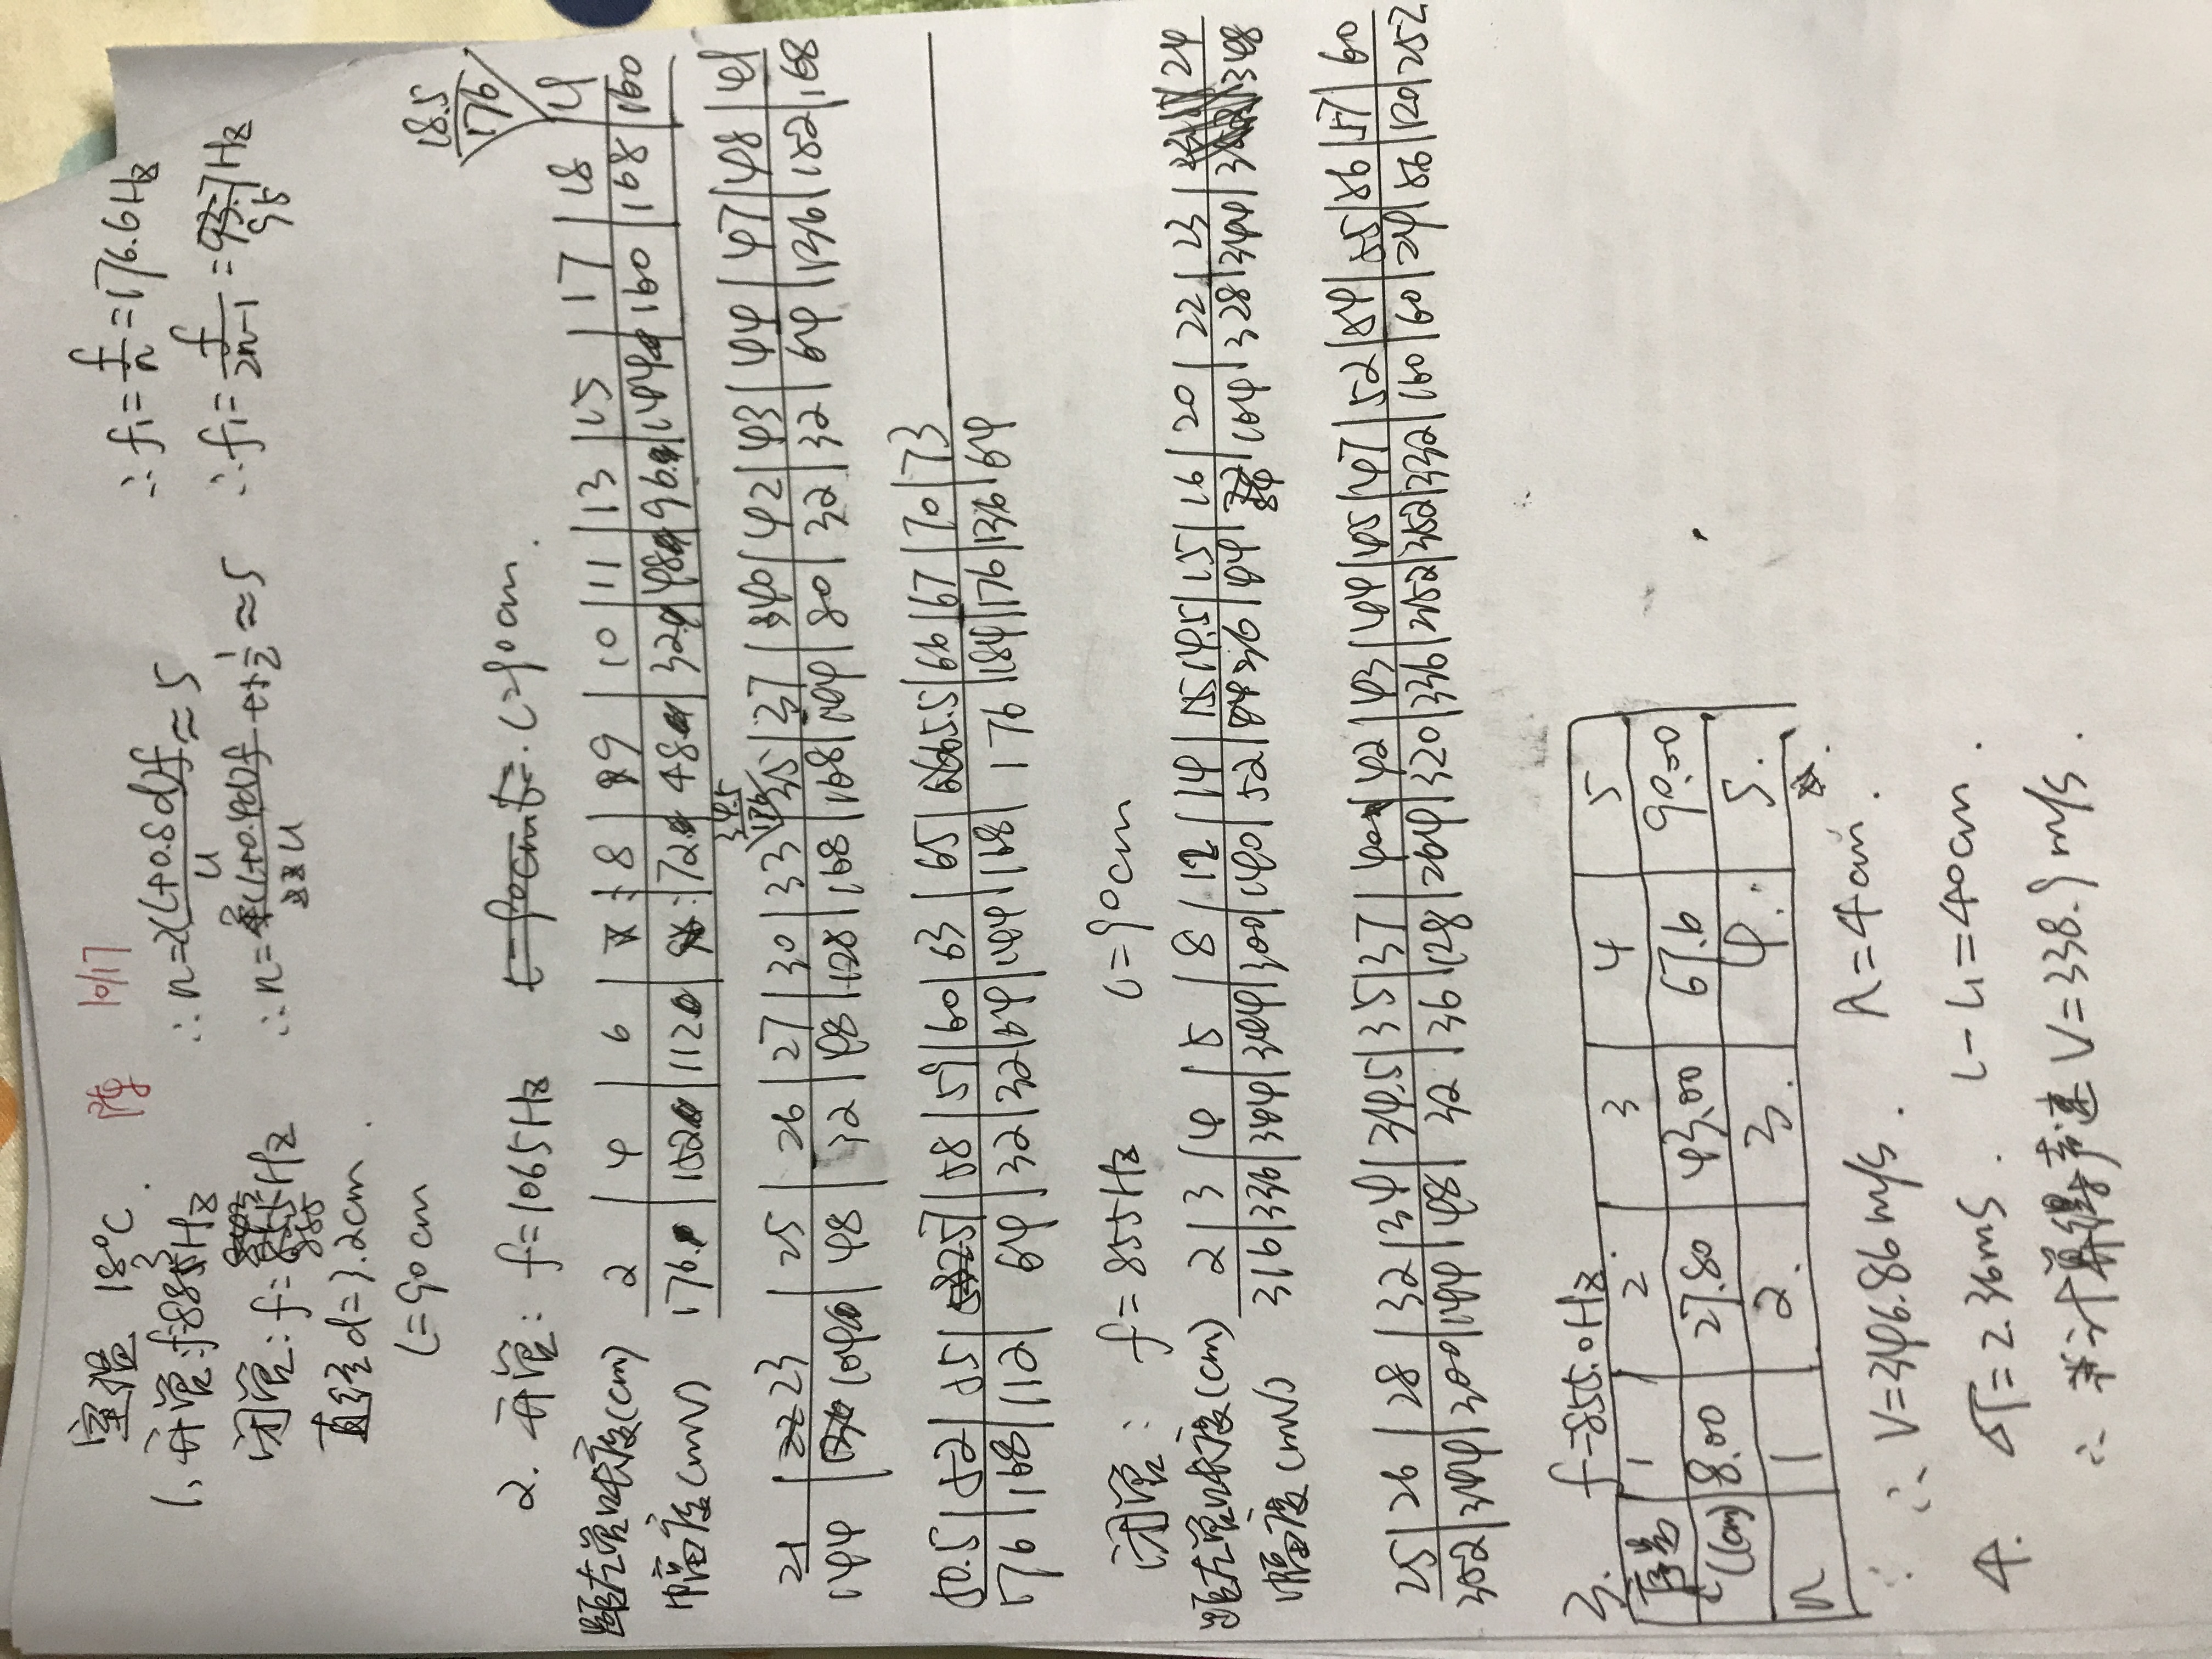 室温 18°C. 10/17
1、开管:f=883Hz ∴n=2(L+0.8d)f/u≈5 ∴f₁=f/n=176.6Hz
闭管:f=855Hz ∴n=2(L+0.4d)f/u+1/2≈5 ∴f₁=f/2n-1=95Hz
直径d=3.2cm.
L=90cm
2. 开管: f=1065Hz L=90cm.
18.5
176
距左管口长度(cm) 2 | 4 | 6 | 8 | 9 | 10 | 11 | 13 | 15 | 17 | 18 |
幅度(mV) 176 | 152 | 112 | 72 | 48 | 32 | 48 | 96 | 144 | 160 | 168 | 160
34.5
176
21 | 23 | 25 | 26 | 27 | 30 | 33 | 35 | 37 | 40 | 42 | 43 | 44 | 47 | 48 |
144 | 104 | 48 | 32 | 48 | 128 | 168 | 168 | 144 | 80 | 32 | 32 | 64 | 136 | 152 | 168
50.5 | 52 | 55 | 57 | 58 | 59 | 60 | 63 | 65 | 65.5 | 66 | 67 | 70 | 73
176 | 168 | 112 | 64 | 32 | 32 | 64 | 144 | 168 | 176 | 184 | 176 | 136 | 64
闭管: f=855Hz L=90cm
距左管口长度(cm) 2 | 3 | 4 | 5 | 8 | 12 | 14 | 14.5 | 15 | 16 | 20 | 22 | 23 | 24
幅度(mV) 316 | 336 | 344 | 344 | 300 | 140 | 52 | 36 | 44 | 84 | 164 | 328 | 344 | 348
25 | 26 | 28 | 32 | 34 | 34.5 | 35 | 37 | 40 | 42 | 43 | 44 | 45 | 47 | 52 | 54 | 55 | 56 | 57 | 60
352 | 344 | 300 | 144 | 48 | 32 | 36 | 128 | 264 | 320 | 336 | 352 | 352 | 332 | 160 | 60 | 24 | 56 | 120 | 252
3. f=855.0Hz
序号 1 2 3 4 5
L(cm) 8.00 27.80 43.00 67.6 90.00
n 1 2. 3. 4. 5.
∴ V=346.86m/s. λ=4cm.
4. ΔT=2.36ms. L-L₁=40cm.
∴ 计算得声速V=338.9m/s.